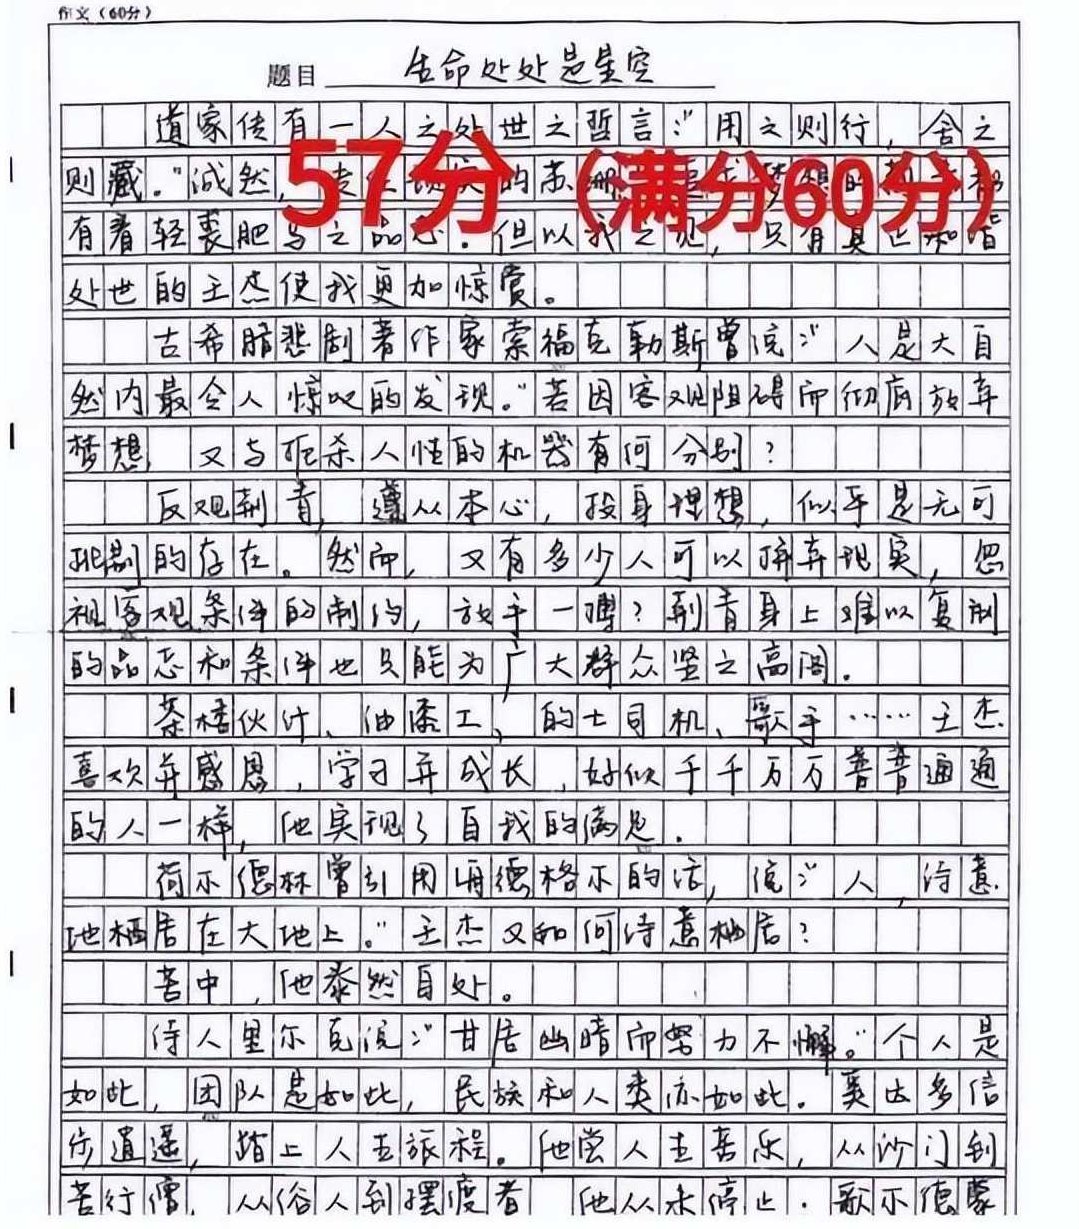 作文（60分）
题目 生命处处是星空
道家传有一人之处世之哲言："用之则行，舍之
则藏。"诚然，的苏
有着轻裘肥马之品志。但以我之见，只有真正和谐
处世的王杰使我更加惊赏。
57分（满分60分）
古希腊悲剧著作家索福克勒斯曾说："人是大自
然内最令人惊叹的发现。"若因客观阻碍而彻底放弃
梦想，又与扼杀人性的机器有何分别？
反观荆青，遵从本心，投身理想，似乎是无可
挑剔的存在。然而，又有多少人可以摒弃现实，忽
视客观条件的制约，放手一搏？荆青身上难以复制
的品志和条件也只能为广大群众竖之高阁。
茶楼伙计、油漆工、的士司机、歌手……王杰
喜欢并感恩，学习并成长，好似千千万万普普通通
的人一样，他实现了自我的满足。
荷尔德林曾引用海德格尔的话，说："人，诗意
地栖居在大地上。"王杰又如何诗意栖居？
苦中，他泰然自处。
诗人里尔克说："甘居幽暗而努力不懈。"个人是
如此，团队是如此，民族和人类亦如此。奚达多信
步逍遥，踏上人生旅程。他尝人生喜乐，从沙门到
苦行僧，从俗人到摆渡者，他从未停止。歌尔德蒙